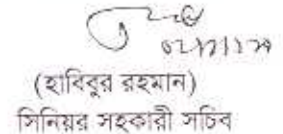 (হাবিবুর রহমান)
সিনিয়র সহকারী সচিব